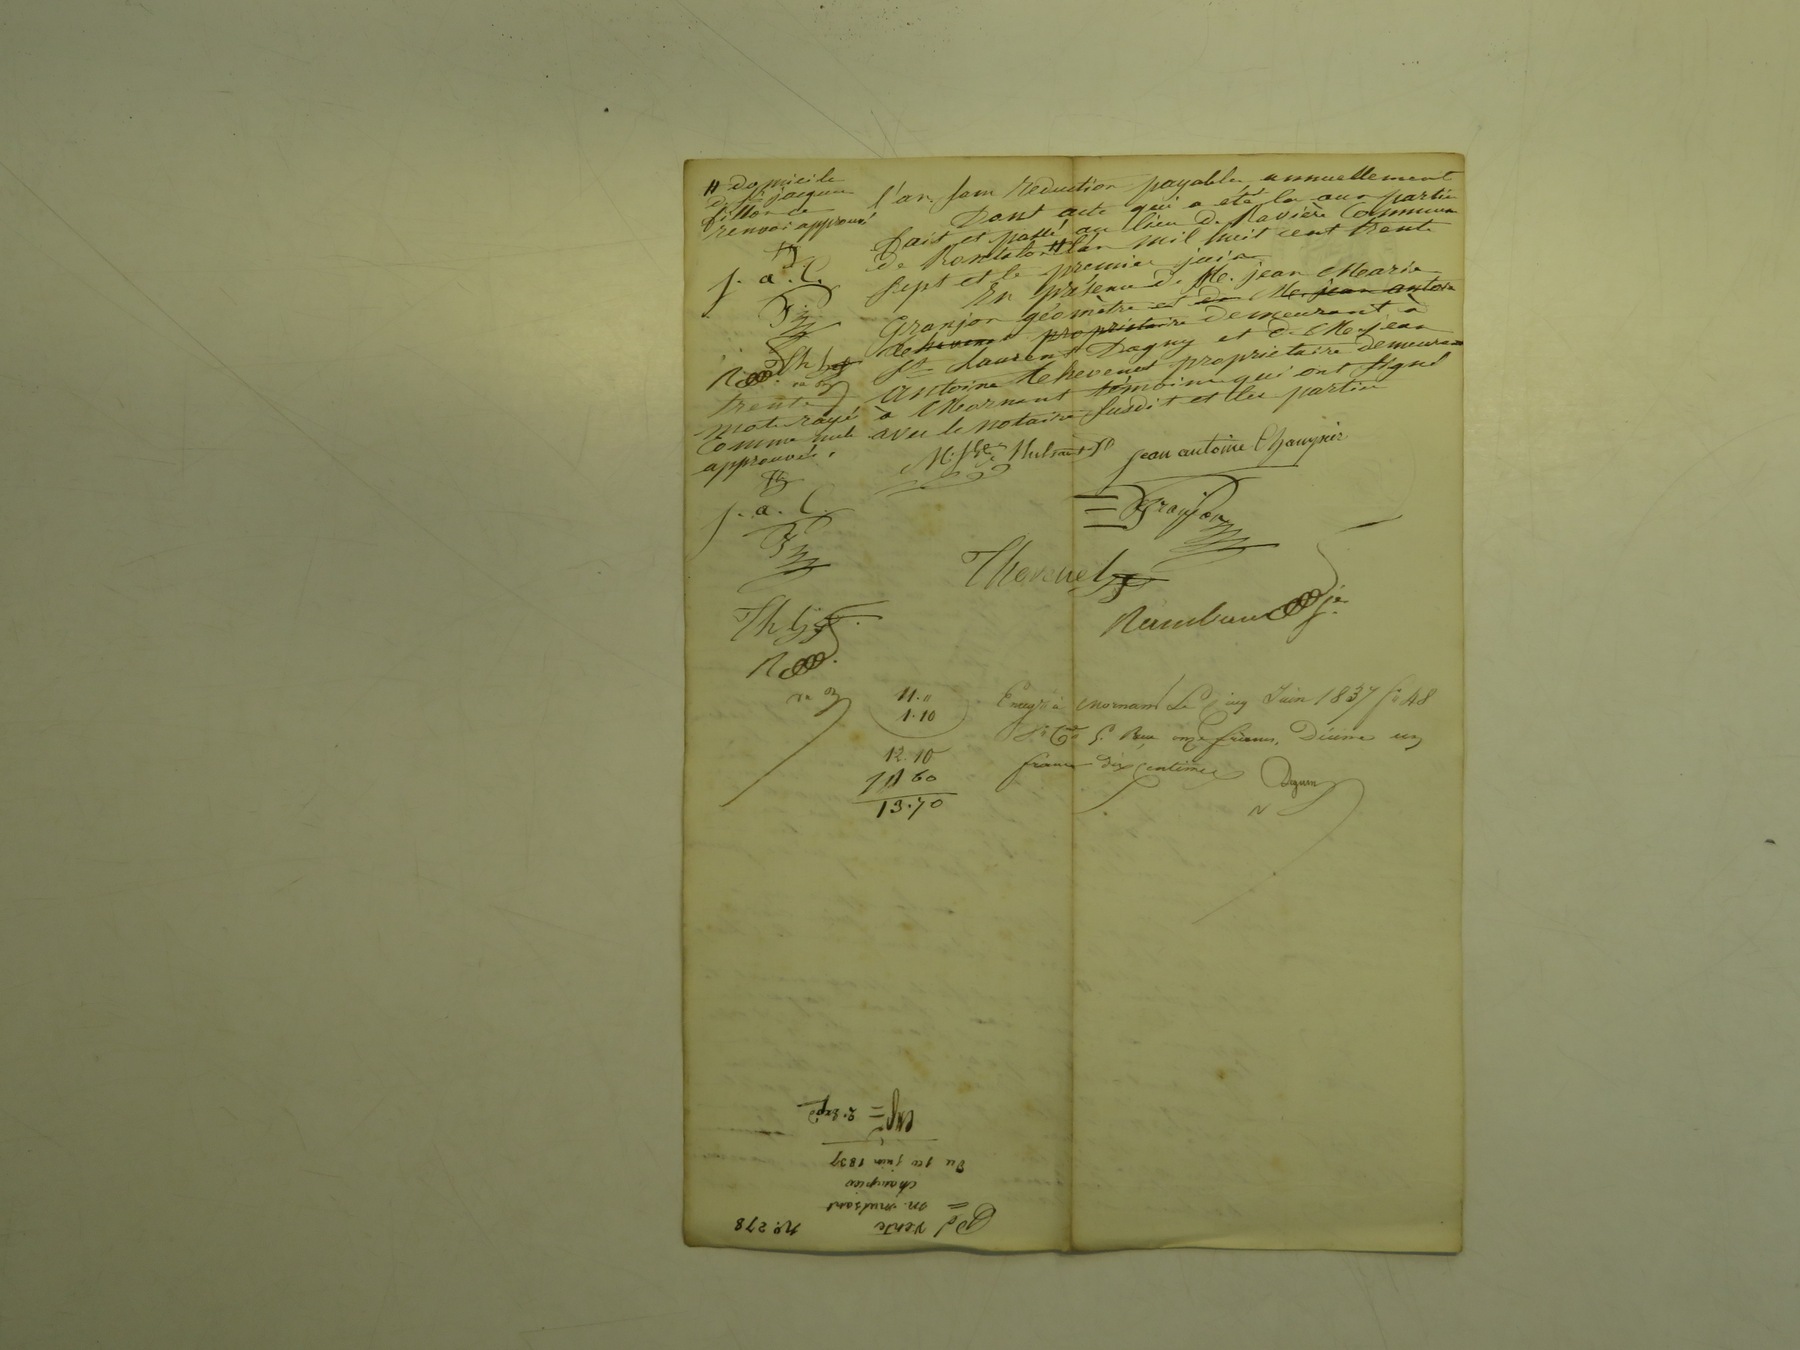 # domicile
de Sr jacques
fillon ce
renvoi approuvé
j. a. C.
Th
R
trente
mots rayés
comme nuls
approuvés.
j. a. C.
Th
R
l'an sans réduction payable annuellement
Dont acte qui a été lu aux parties
Fait et passé au lieu de Ravière Commune
de Rontalon # l'an mil huit cent trente
sept et le premier juin
En présence de Me. jean Marie
Granjon géomètre et de Me. jean antoine
thevenet propriétaire demeurant à
St Laurent Dagny et de Me. jean
Antoine thevenet propriétaire demeurant
à Mornant témoins qui ont signé
avec le notaire susdit et les parties
Mulsant
jean antoine Chaupier
Granjon
Thevenet
Rambaud je
11. "
1. 10
12. 10
1 60
13. 70
Enregré à Mornant Le cinq Juin 1837 fo 48
Reçu onze francs, Décime un
franc dix centimes
No. 278
Vente
m. mulsant
chaupier
Du 1er juin 1837
exp = 2. Exp